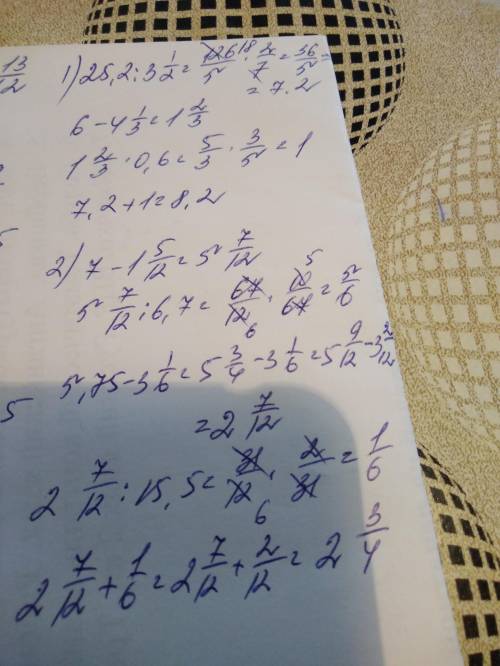 13/12
1) 25,2 : 3 1/2 = 126/5 18 · 2/7 = 36/5 =
= 7.2
6 - 4 1/3 = 1 2/3
1 2/3 · 0,6 = 5/3 · 3/5 = 1
7,2 + 1 = 8,2
5
2) 7 - 1 5/12 = 5 7/12
5 7/12 : 6,7 = 67/12 6 · 10/67 5 = 5/6
5,75 - 3 1/6 = 5 3/4 - 3 1/6 = 5 9/12 - 3 2/12
5
= 2 7/12
2 7/12 : 15,5 = 31/12 6 · 2/31 = 1/6
2 7/12 + 1/6 = 2 7/12 + 2/12 = 2 3/4